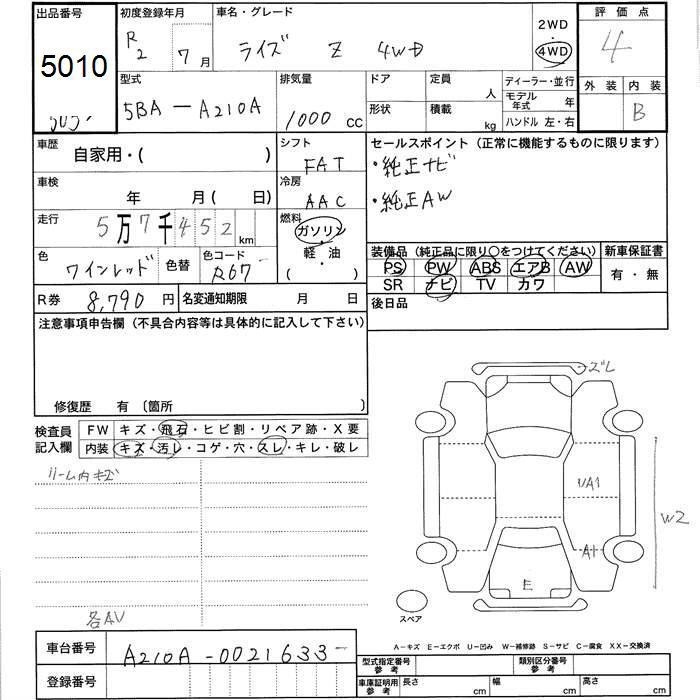 出品番号
5010
初度登録年月
R2 7月
車名・グレード
ライズ Z 4WD
2WD
・
4WD
評価点
4
外装 内装
B
型式
5BA-A210A
排気量
1000 CC
ドア
形状
定員 人
積載 kg
ディーラー・並行
モデル年式 年
ハンドル 左・右
車歴
自家用・( )
シフト
FAT
セールスポイント(正常に機能するものに限ります)
・純正ナビ
・純正AW
車検
年 月(日)
冷房
AAC
走行
5万7千452km
燃料
ガソリン
軽・油
( )
色
ワインレッド
色替
色コード
R67
装備品(純正品に限り〇をつけてください)
PS PW ABS エアB AW
SR ナビ TV カワ
新車保証書
有・無
R券 8,790円
名変通知期限 月 日
後日品
注意事項申告欄(不具合内容等は具体的に記入して下さい)
修復歴 有〔箇所 〕
検査員記入欄
FW キズ・飛石・ヒビ割・リペア跡・X要
内装 キズ・汚レ・コゲ・穴・スレ・キレ・破レ
ルーム内キズ
各AV
ズレ
UA1
A1
W2
E
スペア
A-キズ E-エクボ U-凹み W-補修跡 S-サビ C-腐食 XX-交換済
車台番号
A210A-0021633-
登録番号
型式指定番号 参考
類別区分番号 参考
車庫証明用 参考
長さ cm
幅 cm
高さ cm